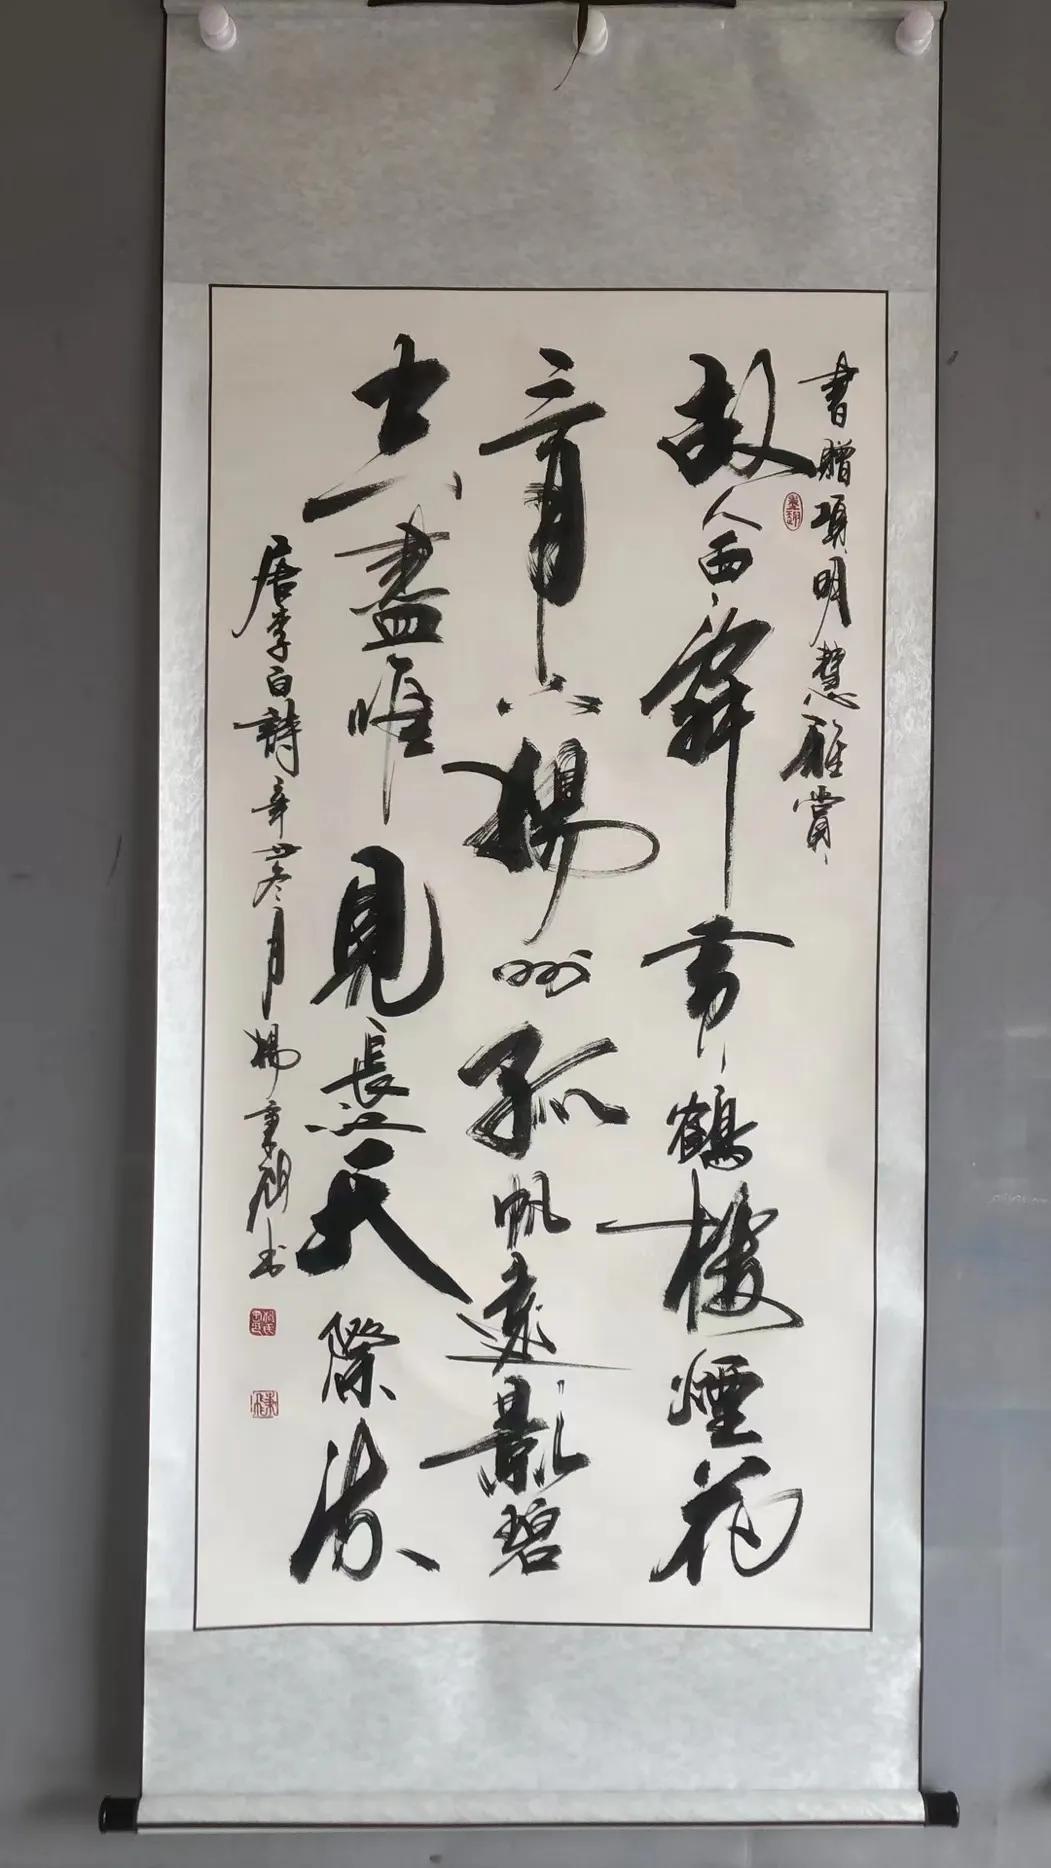 書贈項明慧雅賞
故人西辭黃鶴樓煙花
三月下揚州孤帆遠影碧
空盡唯見長江天際流
唐李白詩辛丑冬月楊秉朔书